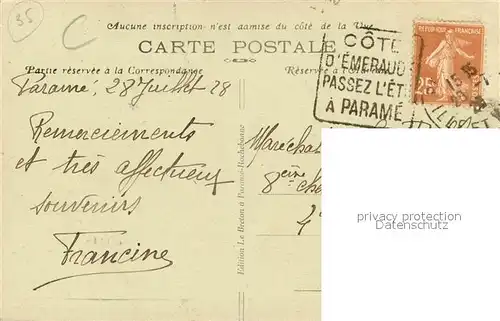 35
C
Aucune inscription n'est aamise du côté de la Vue
CARTE POSTALE
Partie réservée à la Correspondance
Réservée à
CÔTE
D'ÉMERAUDE
PASSEZ L'ÉTÉ
À PARAMÉ
REPUBLIQUE FRANÇAISE
25c
Paramé, 28 Juillet 28
Remerciements
et très affectueux
souvenirs
Francine
Edition Le Breton à Paramé-Rochebonne
Maréchal
8ème
privacy protection
Datenschutz